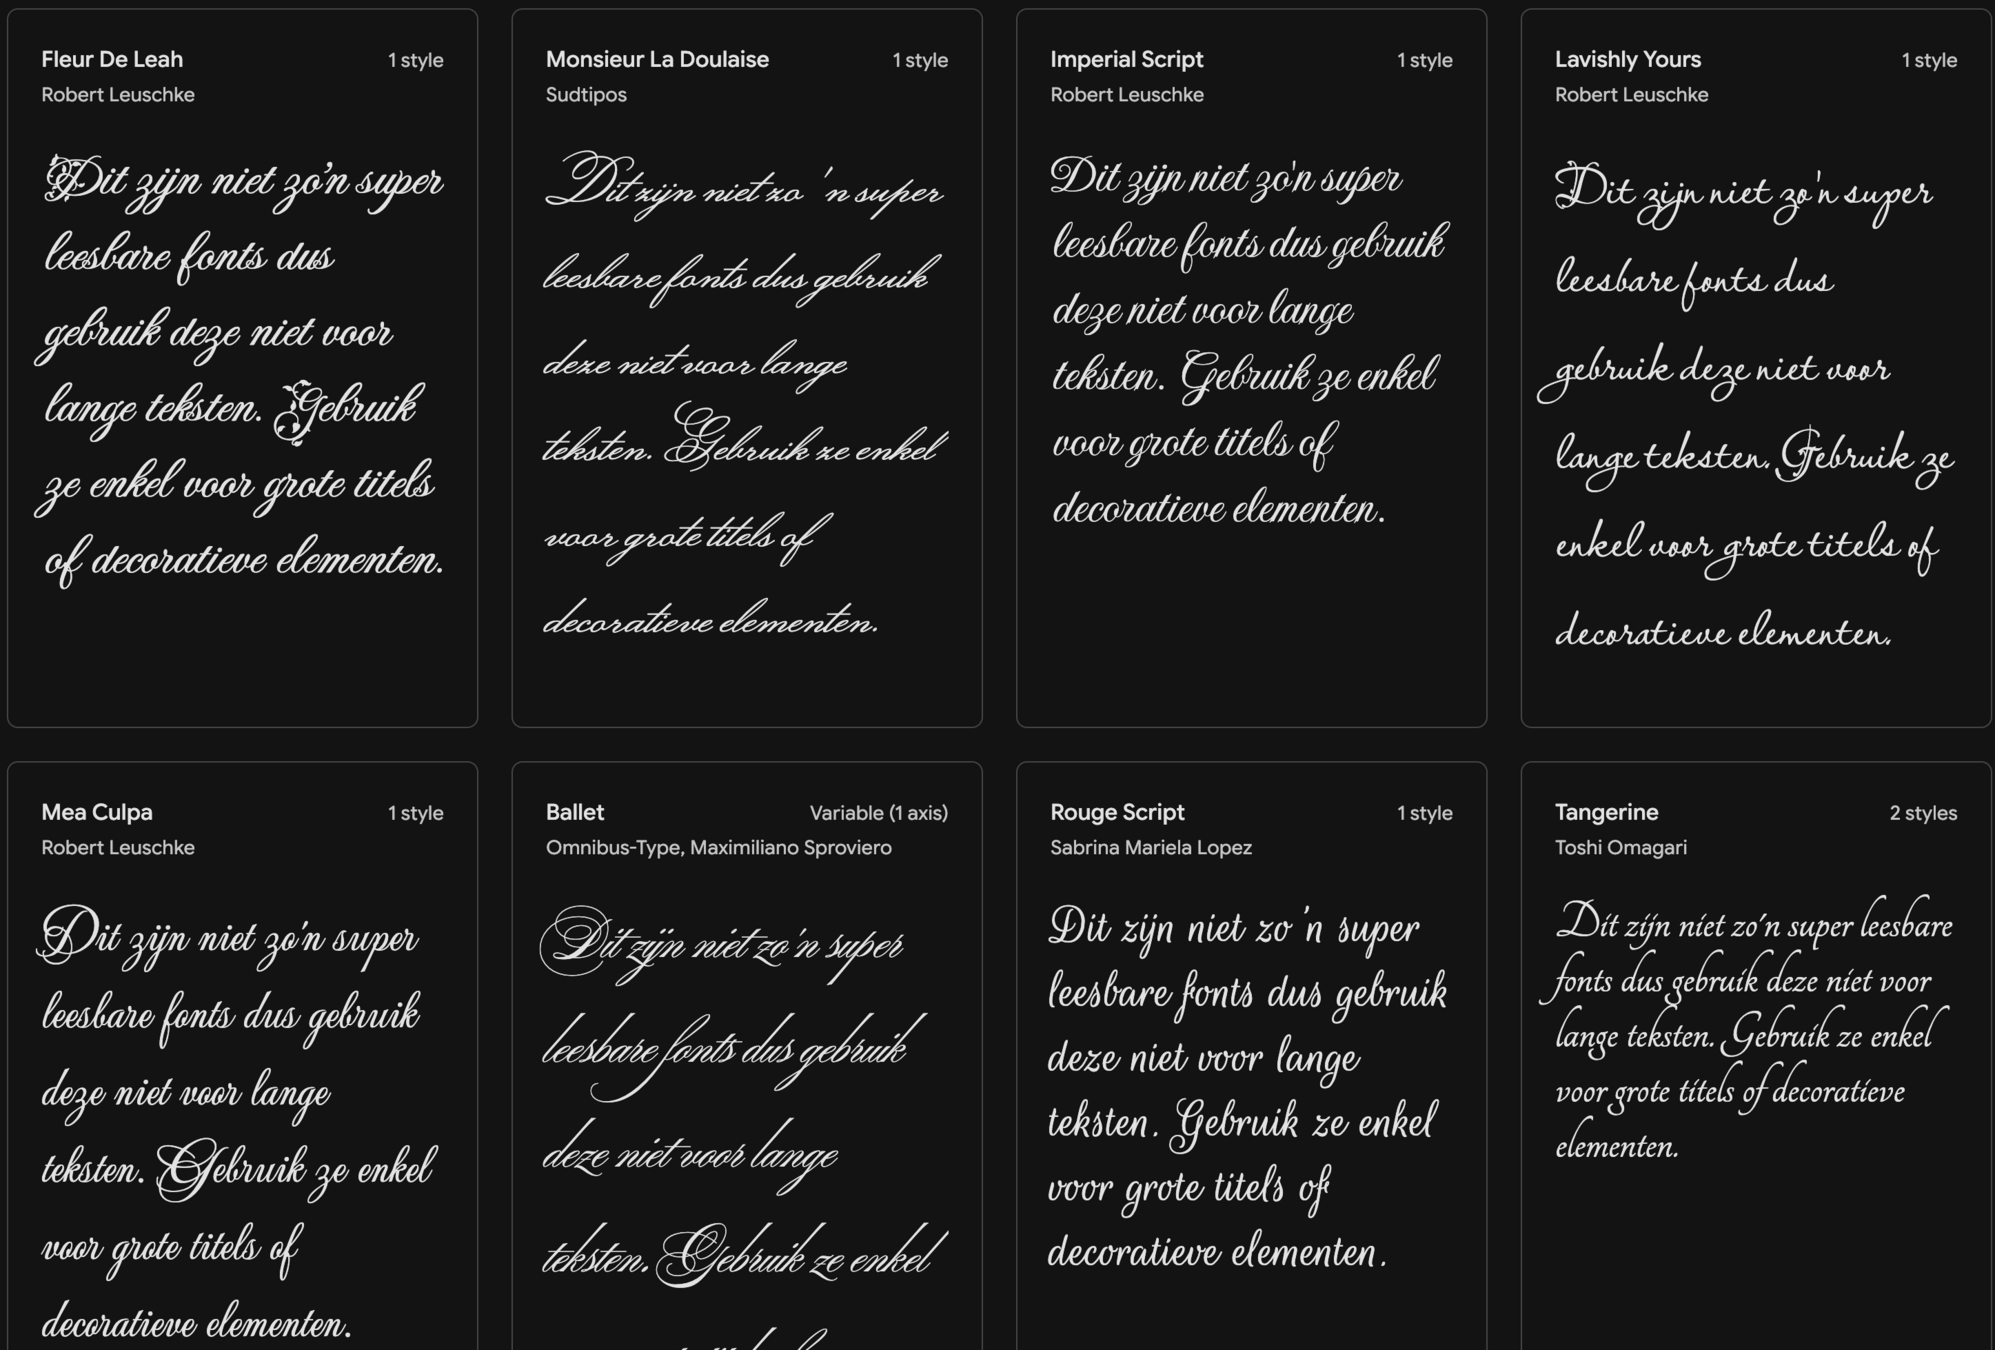 Fleur De Leah 1 style
Robert Leuschke
Dit zijn niet zo'n super
leesbare fonts dus
gebruik deze niet voor
lange teksten. Gebruik
ze enkel voor grote titels
of decoratieve elementen.
Monsieur La Doulaise 1 style
Sudtipos
Dit zijn niet zo 'n super
leesbare fonts dus gebruik
deze niet voor lange
teksten. Gebruik ze enkel
voor grote titels of
decoratieve elementen.
Imperial Script 1 style
Robert Leuschke
Dit zijn niet zo'n super
leesbare fonts dus gebruik
deze niet voor lange
teksten. Gebruik ze enkel
voor grote titels of
decoratieve elementen.
Lavishly Yours 1 style
Robert Leuschke
Dit zijn niet zo'n super
leesbare fonts dus
gebruik deze niet voor
lange teksten. Gebruik ze
enkel voor grote titels of
decoratieve elementen.
Mea Culpa 1 style
Robert Leuschke
Dit zijn niet zo'n super
leesbare fonts dus gebruik
deze niet voor lange
teksten. Gebruik ze enkel
voor grote titels of
decoratieve elementen.
Ballet Variable (1 axis)
Omnibus-Type, Maximiliano Sproviero
Dit zijn niet zo'n super
leesbare fonts dus gebruik
deze niet voor lange
teksten. Gebruik ze enkel
Rouge Script 1 style
Sabrina Mariela Lopez
Dit zijn niet zo 'n super
leesbare fonts dus gebruik
deze niet voor lange
teksten. Gebruik ze enkel
voor grote titels of
decoratieve elementen.
Tangerine 2 styles
Toshi Omagari
Dit zijn niet zo'n super leesbare
fonts dus gebruik deze niet voor
lange teksten. Gebruik ze enkel
voor grote titels of decoratieve
elementen.